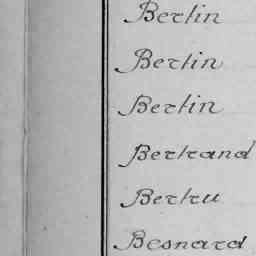 Bertin
Bertin
Bertin
Bertrand
Bertru
Besnard